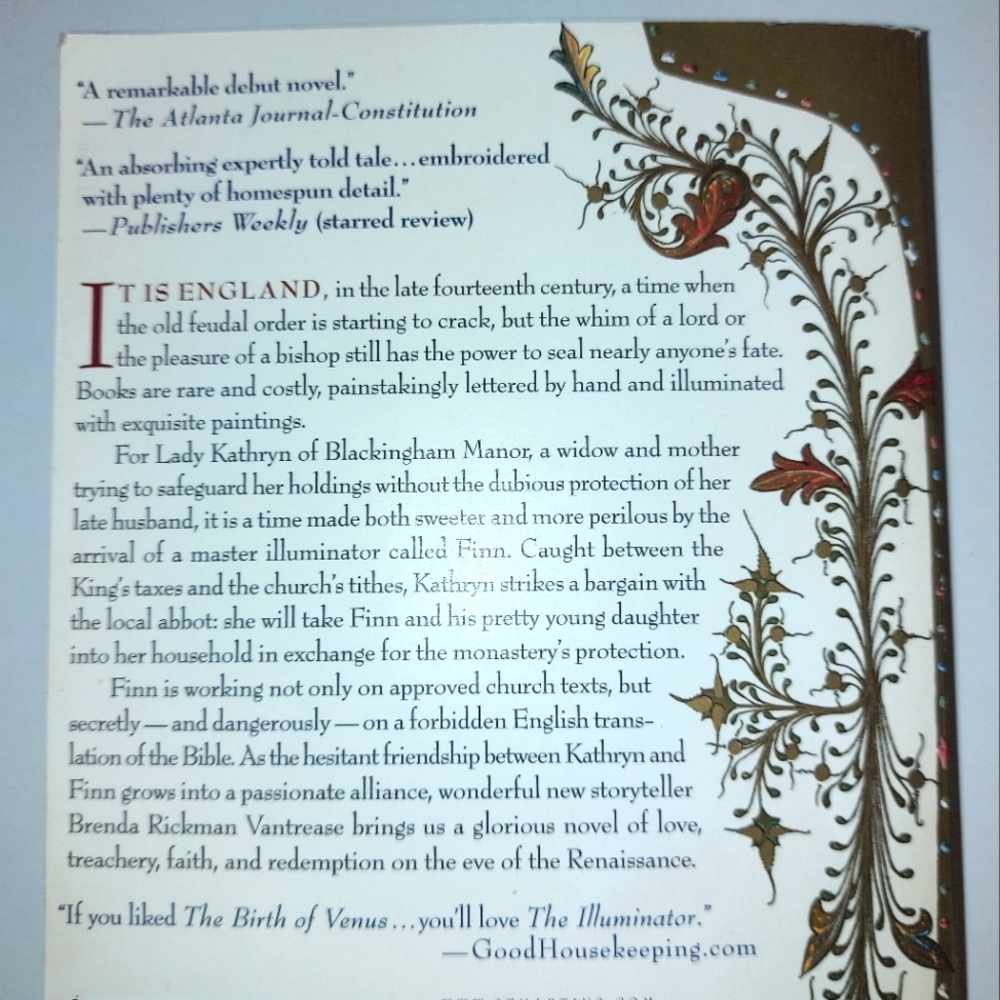 "A remarkable debut novel."
—The Atlanta Journal-Constitution
"An absorbing expertly told tale...embroidered
with plenty of homespun detail."
—Publishers Weekly (starred review)
IT IS ENGLAND, in the late fourteenth century, a time when
the old feudal order is starting to crack, but the whim of a lord or
the pleasure of a bishop still has the power to seal nearly anyone's fate.
Books are rare and costly, painstakingly lettered by hand and illuminated
with exquisite paintings.
For Lady Kathryn of Blackingham Manor, a widow and mother
trying to safeguard her holdings without the dubious protection of her
late husband, it is a time made both sweeter and more perilous by the
arrival of a master illuminator called Finn. Caught between the
King's taxes and the church's tithes, Kathryn strikes a bargain with
the local abbot: she will take Finn and his pretty young daughter
into her household in exchange for the monastery's protection.
Finn is working not only on approved church texts, but
secretly—and dangerously—on a forbidden English trans-
lation of the Bible. As the hesitant friendship between Kathryn and
Finn grows into a passionate alliance, wonderful new storyteller
Brenda Rickman Vantrease brings us a glorious novel of love,
treachery, faith, and redemption on the eve of the Renaissance.
"If you liked The Birth of Venus...you'll love The Illuminator."
—GoodHousekeeping.com